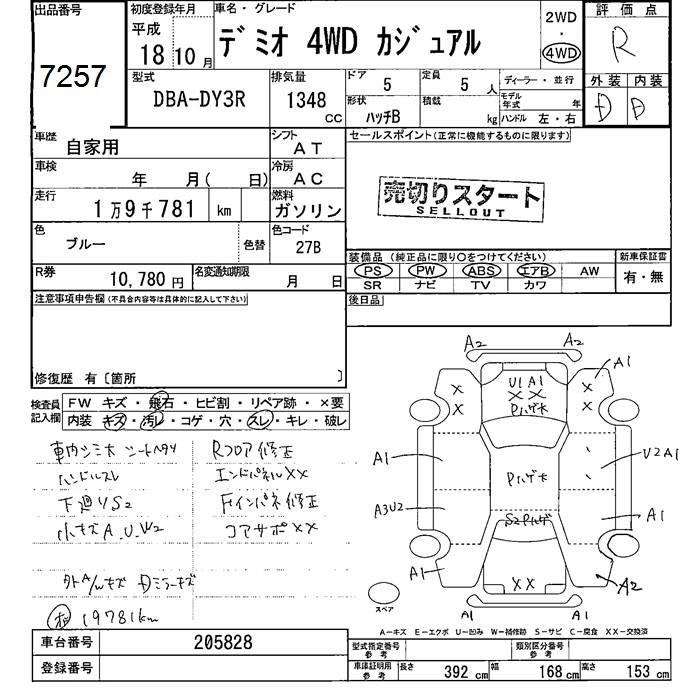 出品番号
7257
初度登録年月
平成
18 10 月
車名・グレード
デミオ 4WD カジュアル
2WD
・
4WD
評価点
R
外装 内装
D D
型式
DBA-DY3R
排気量
1348
cc
ドア
5
定員
5 人
ディーラー・並行
形状
ハッチB
積載
kg
モデル年式 年
ハンドル 左・右
車歴
自家用
シフト
AT
車検
年 月( 日)
冷房
AC
走行
1万9千781 km
燃料
ガソリン
色
ブルー
色替
色コード
27B
R券
10,780 円
名変通知期限
月 日
セールスポイント(正常に機能するものに限ります)
売切りスタート
SELLOUT
装備品(純正品に限り○をつけてください)
新車保証書
PS PW ABS エアB AW
有・無
SR ナビ TV カワ
後日品
注意事項申告欄(不具合内容等は具体的に記入して下さい)
修復歴 有〔箇所 〕
検査員記入欄
FW キズ・飛石・ヒビ割・リペア跡・×要
内装 キズ・汚レ・コゲ・穴・スレ・キレ・破レ
車内シミ大 シートヘタリ
ハンドルスレ
下廻りS2
小キズA.U.W2
外A/wキズ Dミラーキズ
19781km
Rフロア修正
エンドパネルXX
Fインパネ修正
コアサポXX
A2 A2
A1
U1 A1
XX
Pハゲ大
X X
X X
A1
Pハゲ大
U2A1
A3U2
S2Pハゲ
A1
A1
XX
A2
スペア
A1 A1
A―キズ E―エクボ U―凹み W―補修跡 S―サビ C―腐食 XX―交換済
車台番号
205828
登録番号
型式指定番号
参考
類別区分番号
参考
車庫証明用
参考
長さ 392 cm
幅 168 cm
高さ 153 cm